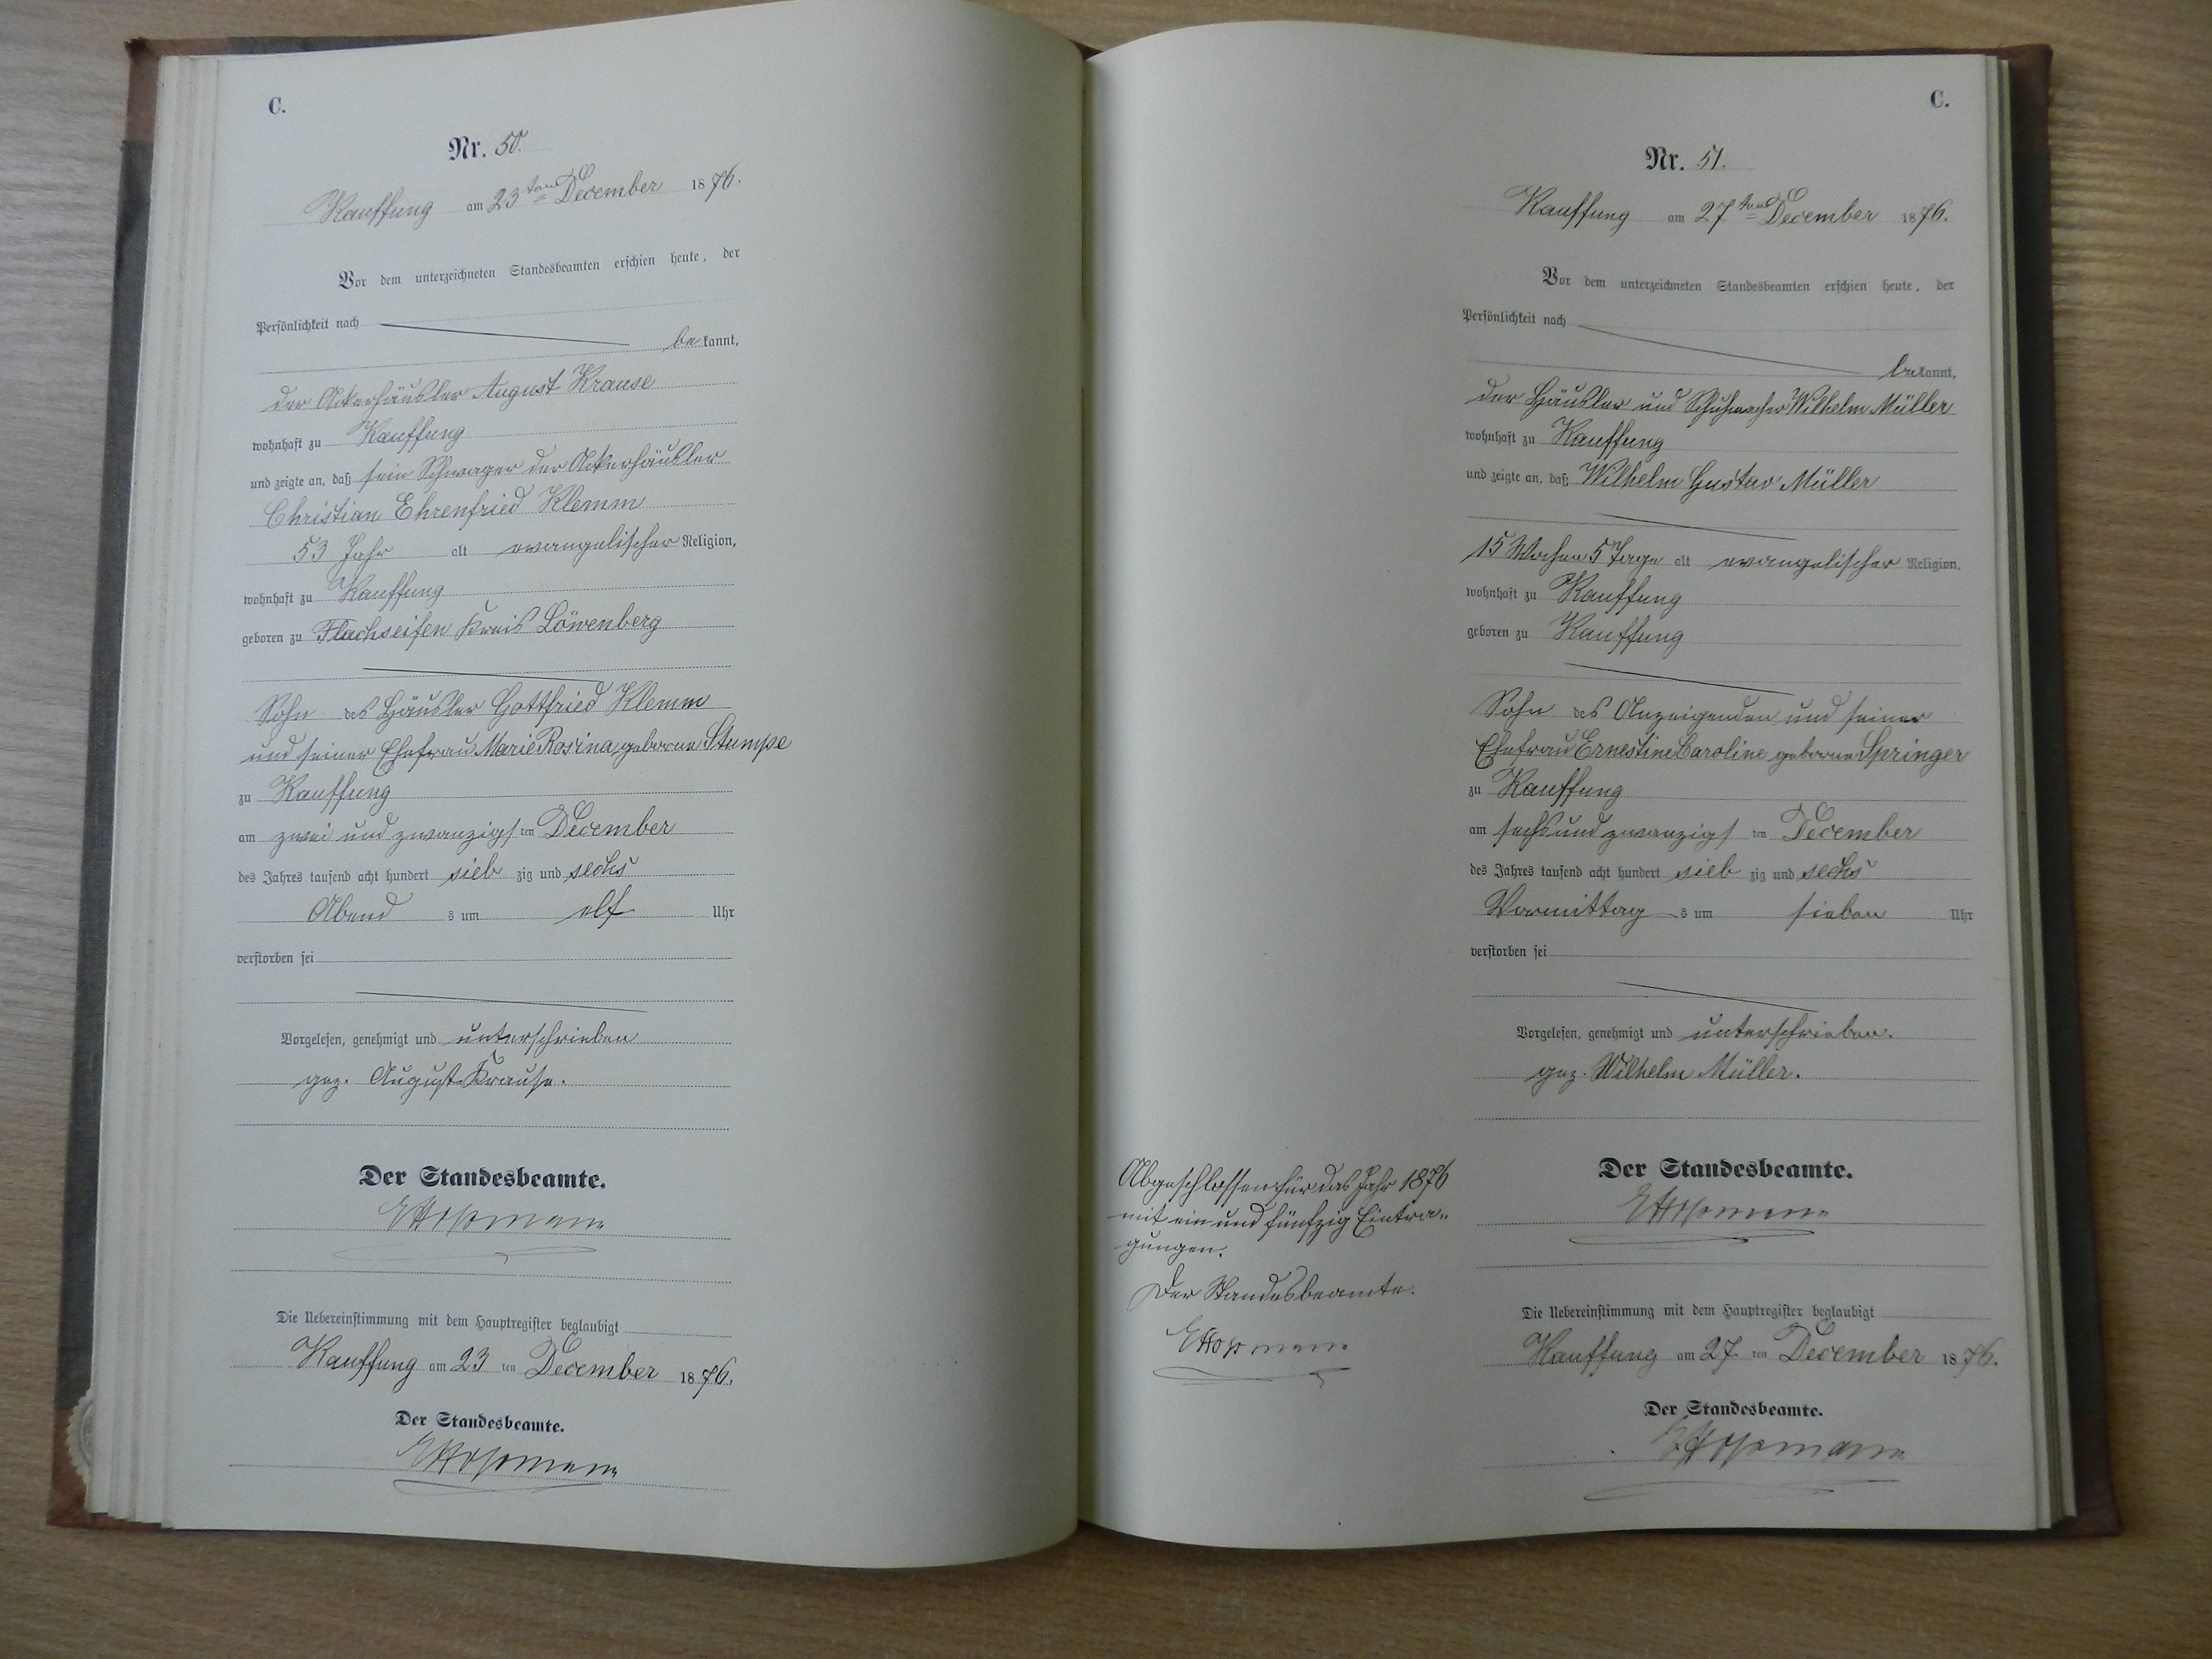 C.
Nr. 50.
Kauffung am 23ten December 1876.
Vor dem unterzeichneten Standesbeamten erschien heute, der
Persönlichkeit nach
bekannt,
der Ackerhäusler August Krause
wohnhaft zu Kauffung
und zeigte an, daß sein Schwager der Ackerhäusler
Christian Ehrenfried Klemm
53 Jahr alt evangelischer Religion,
wohnhaft zu Kauffung
geboren zu Flachseifen Kreis Löwenberg
Sohn des Häusler Gottfried Klemm
und seiner Ehefrau Marie Rosina geborne Stumpe
zu Kauffung
am zwei und zwanzigsten December
des Jahres tausend acht hundert siebzig und sechs
Abends um elf Uhr
verstorben sei
Vorgelesen, genehmigt und unterschrieben
gez. August Krause.
Der Standesbeamte.
Die Uebereinstimmung mit dem Hauptregister beglaubigt
Kauffung am 23ten December 1876.
Der Standesbeamte.
C.
Nr. 51.
Kauffung am 27ten December 1876.
Vor dem unterzeichneten Standesbeamten erschien heute, der
Persönlichkeit nach
bekannt,
der Häusler und Schuhmacher Wilhelm Müller
wohnhaft zu Kauffung
und zeigte an, daß Wilhelm Gustav Müller
15 Wochen 5 Tage alt evangelischer Religion,
wohnhaft zu Kauffung
geboren zu Kauffung
Sohn des Anzeigenden und seiner
Ehefrau Ernestine Caroline geborne Springer
zu Kauffung
am sechs und zwanzigsten December
des Jahres tausend acht hundert siebzig und sechs
Vormittags um sieben Uhr
verstorben sei
Vorgelesen, genehmigt und unterschrieben.
gez. Wilhelm Müller.
Der Standesbeamte.
Abgeschlossen für das Jahr 1876
mit ein und fünfzig Eintra-
gungen.
Der Standesbeamte.
Die Uebereinstimmung mit dem Hauptregister beglaubigt
Kauffung am 27ten December 1876.
Der Standesbeamte.